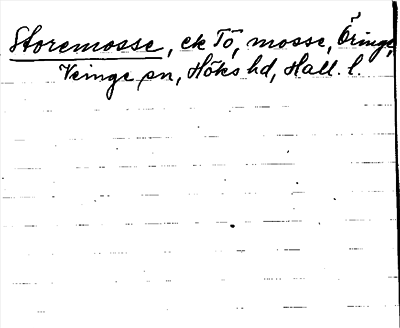 Storemosse, ek Tö, mosse, Öringe,
Veinge sn, Höks hd, Hall. l.